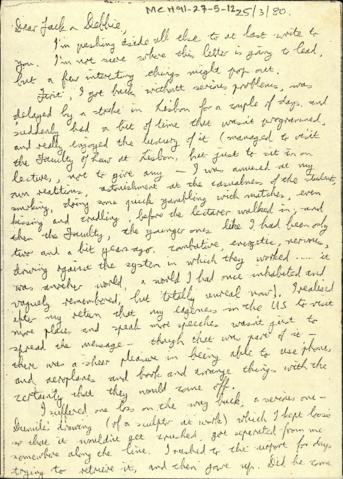 MCH91-27-5-12
25/3/80.
Dear Jack & Debbie,
I'm pushing aside all else to at last write to
you. I'm not sure where this letter is going to lead,
but a few interesting things might pop out.
First, I got back without serious problems, was
delayed by a strike in Lisbon for a couple of days, and
suddenly had a bit of time that wasn't programmed,
and really enjoyed the luxury of it (managed to visit
the Faculty of Law at Lisbon, but just to sit in on
lecture, not to give any — I was amused at my
own reactions, astonishment at the casualness of the students,
smoking, doing some quick gambling with matches, even
kissing and cuddling, before the lecturer walked in, and
then the Faculty, the younger ones like I had been only
two and a bit years ago, combative, energetic, nervous,
driving against the system in which they worked .... it
was another world, a world I had once inhabited and
vaguely remembered, but totally unreal now). I realised
after my return that my eagerness in the US to visit
more places and speak more speeches wasn't just to
spread the message — though that was part of it —
there was a sheer pleasure in being able to use phones
and aeroplanes and book and arrange things with the
certainty that they would come off.
I suffered one loss on the way back, a serious one —
drawing (of a sculptor at work) which I kept loose
so that it wouldn't get crushed, got separated from me
somewhere along the line. I rushed to the airport for days
trying to retrieve it, and then gave up. Did he some